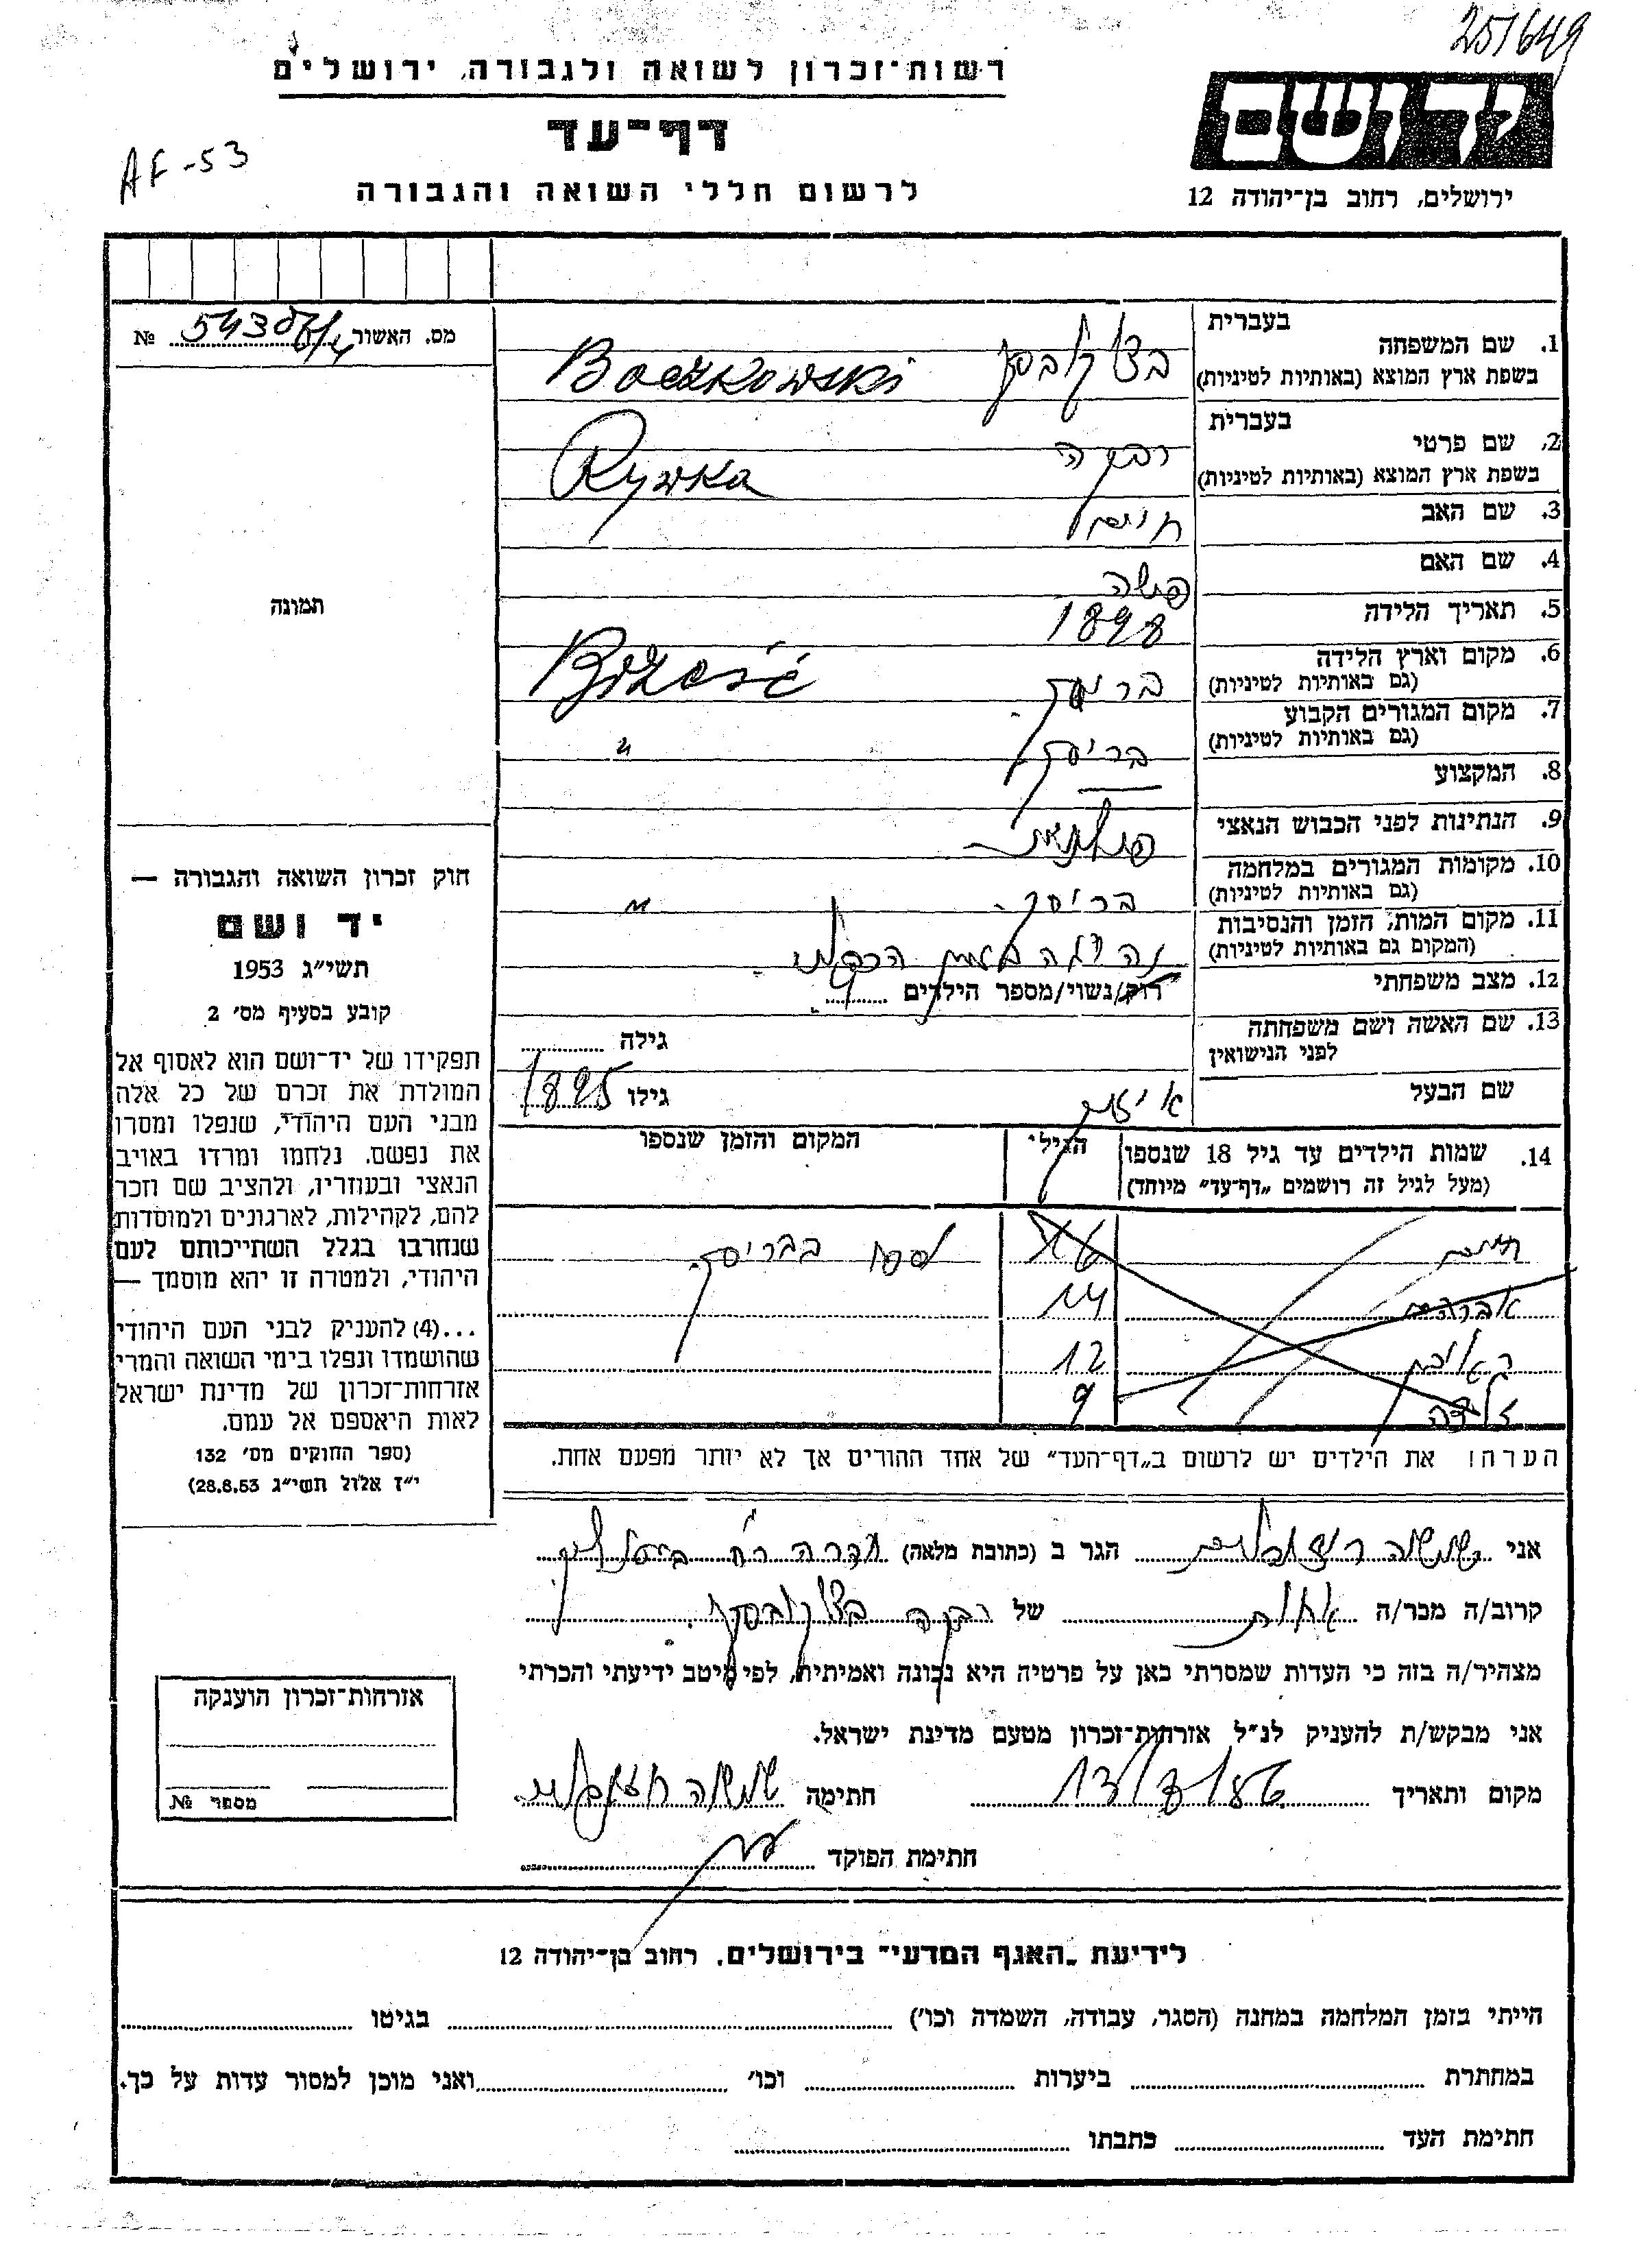 25/649
רשות־זכרון לשואה ולגבורה, ירושלים
דף־עד
AF-53
לרשום חללי השואה והגבורה
יד ושם
ירושלים, רחוב בן־יהודה 12
מס. האשור № 54305/4
בעברית
1. שם המשפחה
בשפת ארץ המוצא (באותיות לטיניות) Boczkowski
בעברית
2. שם פרטי רבקה
בשפת ארץ המוצא (באותיות לטיניות) Rywka
3. שם האב חיים
4. שם האם פשה
5. תאריך הלידה 1898
6. מקום וארץ הלידה בריסק
(גם באותיות לטיניות) Brześć
7. מקום המגורים הקבוע בריסק "
(גם באותיות לטיניות)
8. המקצוע —
9. הנתינות לפני הכבוש הנאצי פולנית
10. מקומות המגורים במלחמה בריסק "
(גם באותיות לטיניות)
11. מקום המות, הזמן והנסיבות
(המקום גם באותיות לטיניות)
12. מצב משפחתי רווק/נשוי/מספר הילדים
13. שם האשה ושם משפחתה
לפני הנישואין גילה
שם הבעל גילו 1895
14. שמות הילדים עד גיל 18 שנספו הגיל המקום והזמן שנספו
(מעל לגיל זה רושמים „דף־עד” מיוחד)
חיים 16 נספו בבריסק
אברהם 14
ראובן 12
זלדה 9
הערה! את הילדים יש לרשום ב„דף־העד” של אחד ההורים אך לא יותר מפעם אחת.
תמונה
חוק זכרון השואה והגבורה —
יד ושם
תשי״ג 1953
קובע בסעיף מס׳ 2
תפקידו של יד־ושם הוא לאסוף אל
המולדת את זכרם של כל אלה
מבני העם היהודי, שנפלו ומסרו
את נפשם. נלחמו ומרדו באויב
הנאצי ובעוזריו, ולהציב שם וזכר
להם, לקהילות, לארגונים ולמוסדות
שנחרבו בגלל השתייכותם לעם
היהודי, ולמטרה זו יהא מוסמך —
...(4) להעניק לבני העם היהודי
שהושמדו ונפלו בימי השואה והמרי
אזרחות־זכרון של מדינת ישראל
לאות היאספם אל עמם.
(ספר החוקים מס׳ 132
י״ז אלול תשי״ג 28.8.53)
אני הגר ב (כתובת מלאה)
קרוב/ה מכר/ה אחות של רבקה
מצהיר/ה בזה כי העדות שמסרתי כאן על פרטיה היא נכונה ואמיתית, לפי מיטב ידיעתי והכרתי
אני מבקש/ת להעניק לנ״ל אזרחות־זכרון מטעם מדינת ישראל.
מקום ותאריך חתימה
חתימת הפוקד
אזרחות־זכרון הוענקה
מספר №
לידיעת „האגף המדעי” בירושלים. רחוב בן־יהודה 12
הייתי בזמן המלחמה במחנה (הסגר, עבודה, השמדה וכו׳) בגיטו
במחתרת ביערות וכו׳ ואני מוכן למסור עדות על כך.
חתימת העד כתבתו